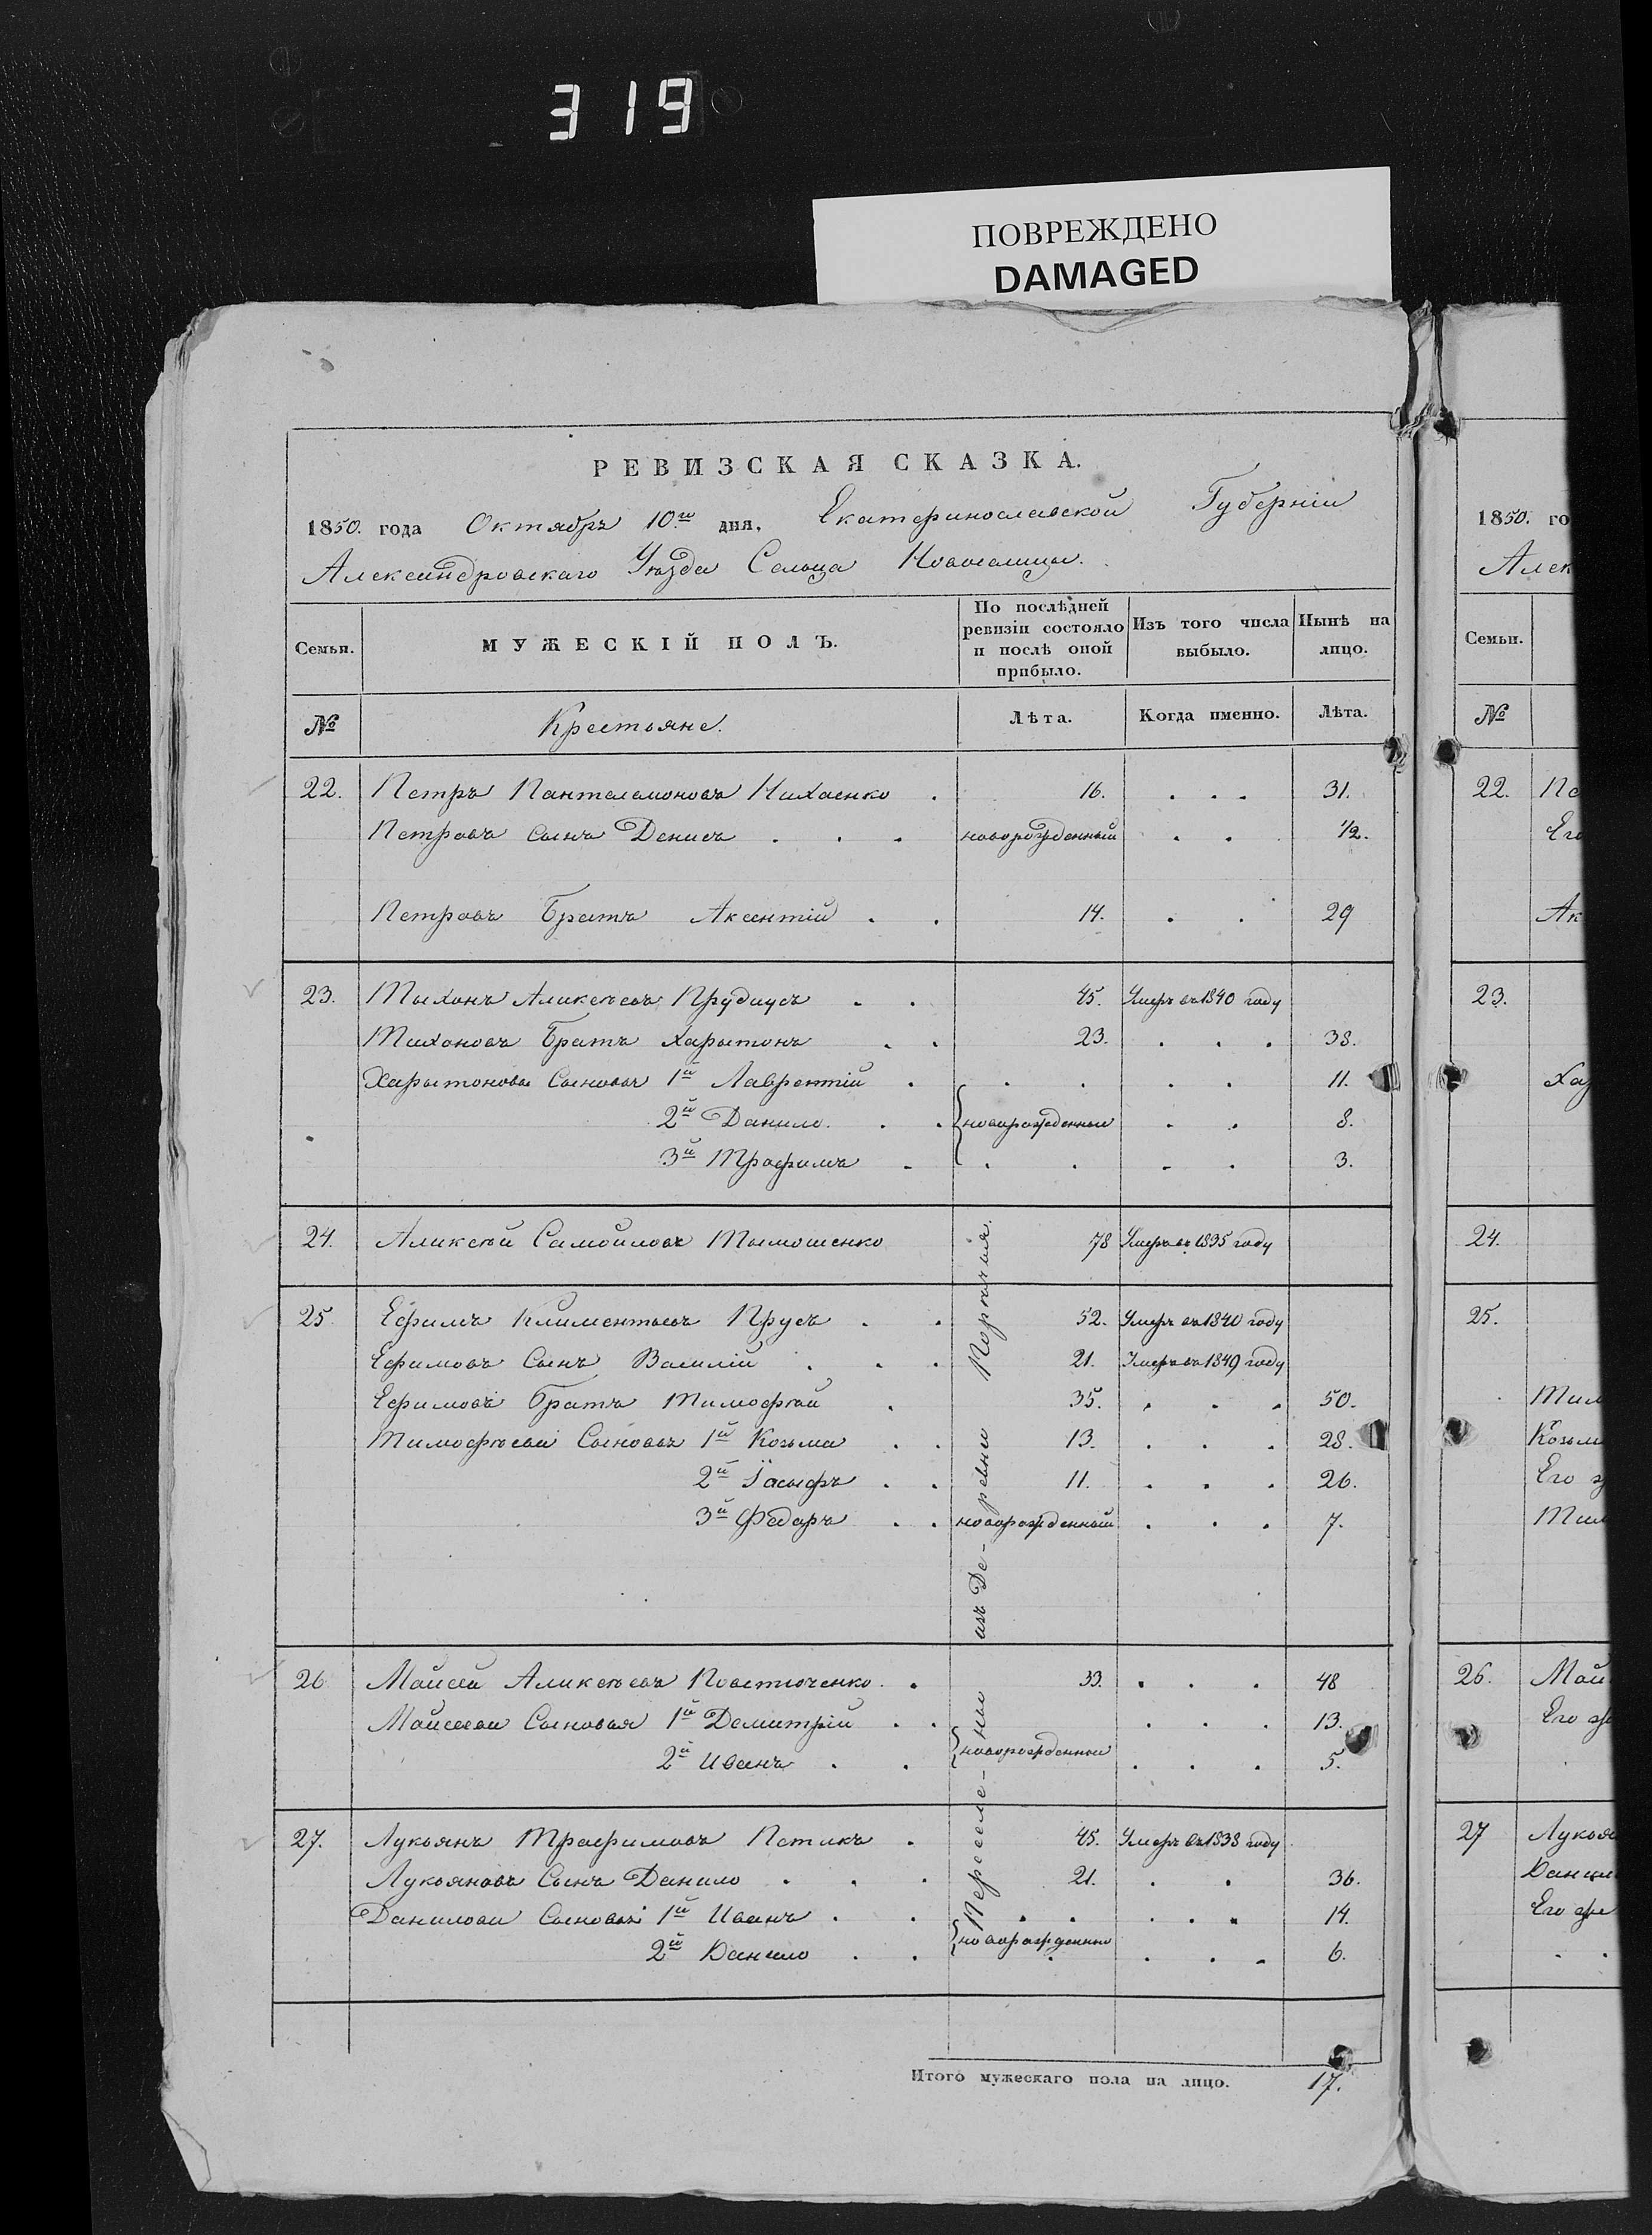 319
ПОВРЕЖДЕНО
DAMAGED
РЕВИЗСКАЯ СКАЗКА.
1850. года Октября 10го дня, Екатеринославской Губерніи
Александровскаго Уѣзда Сельца Новоселицы.
Семьи. МУЖЕСКІЙ ПОЛЪ. По послѣдней ревизіи состояло и послѣ оной прибыло. Изъ того числа выбыло. Нынѣ на лицо.
№ Крестьяне. Лѣта. Когда именно. Лѣта.
22. Петръ Пантелемоновъ 16. 31.
Петровъ сынъ Денисъ новорожденный 1/2.
Петровъ Братъ Аксентій 14. 29
23. Тыхонъ Аликсѣевъ Прудиусъ 45. Умеръ въ 1840 году
Тихоновъ Братъ Харытонъ 23. 38.
Харытоновы Сыновья 1й Лаврентій 11.
2й Данило. новорожденные 8.
3й Трофимъ 3.
24. Аликсѣй Самойловъ Тымошенко 78 Умеръ въ 1835 году
25. Ефимъ Климентьевъ Прусъ 52. Умеръ въ 1840 году
Ефимовъ Сынъ Василій 21. Умеръ въ 1849 году
Ефимовъ Братъ Тимофѣй 35. 50.
Тимофѣеви Сыновья 1й Козьма 13. 28.
2й Іосыфъ 11. 26.
3й Федоръ новорожденный 7.
26. Мойсей Аликсѣевъ 33. 48
Мойсееви Сыновья 1й Демитрій 13.
2й Иванъ новорожденные 5.
27. Лукьянъ Трофимовъ Петикъ 45. Умеръ въ 1838 году
Лукьяновъ Сынъ Данило 21. 36.
Данилови Сыновья 1й Иванъ 14.
2й Данило новорожденные 6.
Переселе-ны изъ Де-ревни
Итого мужескаго пола на лицо. 17.
1850. го
Алек
Семьи.
№
22. Пе
Его
Ак
23.
Хар
24.
25.
Тим
Козьм
Его
Тим
26. Мой
Его
27 Лукья
Данил
Его же